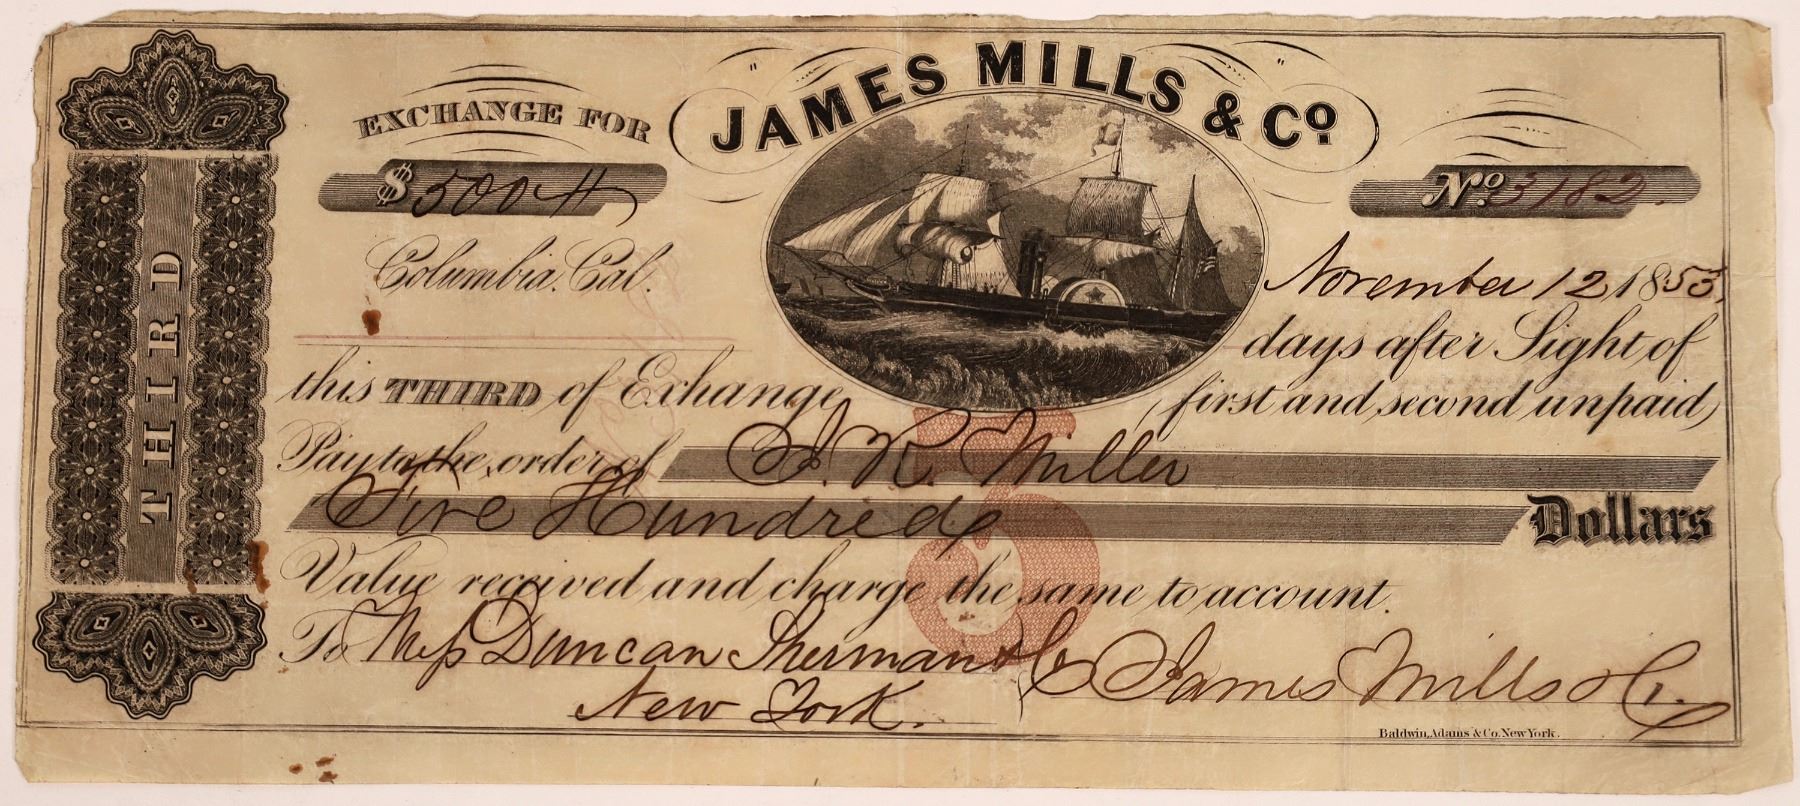 JAMES MILLS & Cº
EXCHANGE FOR
$ 500
Nº 3182
THIRD
Columbia. Cal.
November 12 1853
days after Sight of
this THIRD of Exhange (first and second unpaid)
Pay to the order of J. R. Miller
Five Hundred Dollars
Value received and charge the same to account.
To Mess Duncan Sherman & Co James Mills & Co.
New York.
Baldwin, Adams & Co. New York.
5